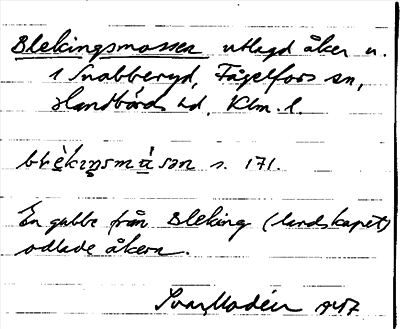 Blekingsmossen utlagd åker u.
1 Snabberyd, Fågelfors sn,
Handbörds hd. Klm. l.
s. 171.
En gubbe från Bleking (landskapet)
odlade åkern.
Ivar Modéer 1947